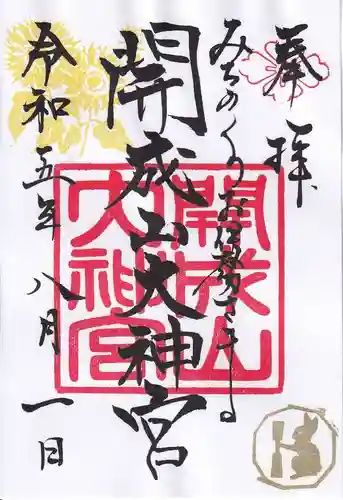 奉拝
みちのくのお伊勢さま
開成山大神宮
開成山
大神宮
令和五年八月一日